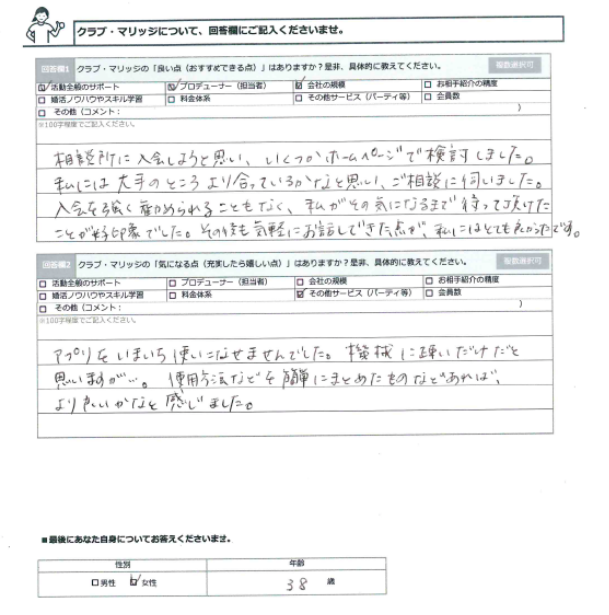 クラブ・マリッジについて、回答欄にご記入くださいませ。
回答欄1 クラブ・マリッジの「良い点（おすすめできる点）」はありますか？是非、具体的に教えてください。 複数選択可
☑ 活動全般のサポート ☑ プロデューサー（担当者） ☑ 会社の規模 □ お相手紹介の精度
□ 婚活ノウハウやスキル学習 □ 料金体系 □ その他サービス（パーティ等） □ 会員数
□ その他（コメント： ）
※100字程度でご記入ください。
相談所に入会しようと思い、いくつかホームページで検討しました。
私には大手のところより合っているかなと思い、ご相談に伺いました。
入会を強く勧められることもなく、私がその気になるまで待って頂けた
ことが好印象でした。その後も気軽にお話しできた点が、私にはとても良かったです。
回答欄2 クラブ・マリッジの「気になる点（充実したら嬉しい点）」はありますか？是非、具体的に教えてください。 複数選択可
□ 活動全般のサポート □ プロデューサー（担当者） □ 会社の規模 □ お相手紹介の精度
□ 婚活ノウハウやスキル学習 □ 料金体系 ☑ その他サービス（パーティ等） □ 会員数
□ その他（コメント： ）
※100字程度でご記入ください。
アプリをいまいち使いこなせませんでした。機械に疎いだけだと
思いますが…。使用方法などを簡単にまとめたものなどあれば、
より良いかなと感じました。
■最後にあなた自身についてお答えくださいませ。
性別 年齢
□男性 ☑女性 38 歳